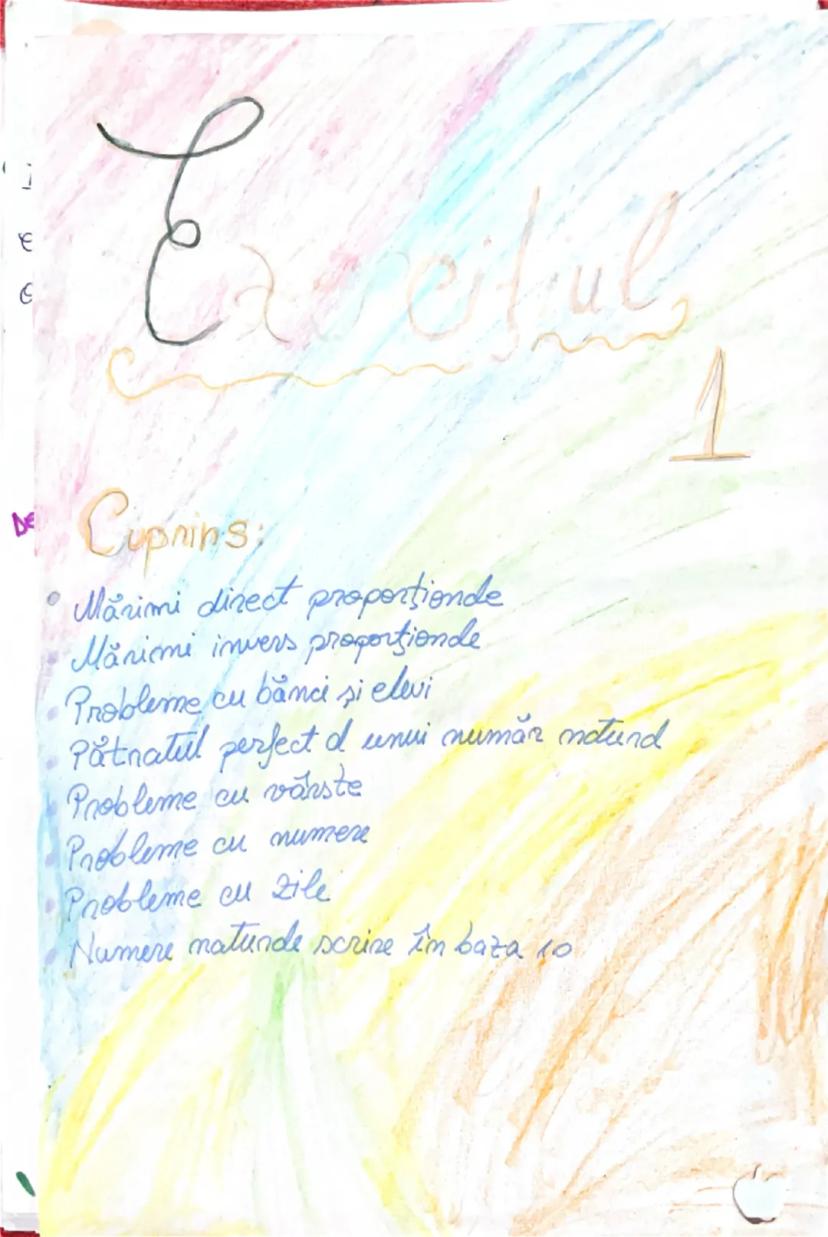 Exercițiul
1
Cuprins:
Mărimi direct proporționale
Mărimi invers proporționale
Probleme cu bănci și elevi
Pătratul perfect al unui număr natural
Probleme cu vârste
Probleme cu numere
Probleme cu zile
Numere naturale scrise în baza 10